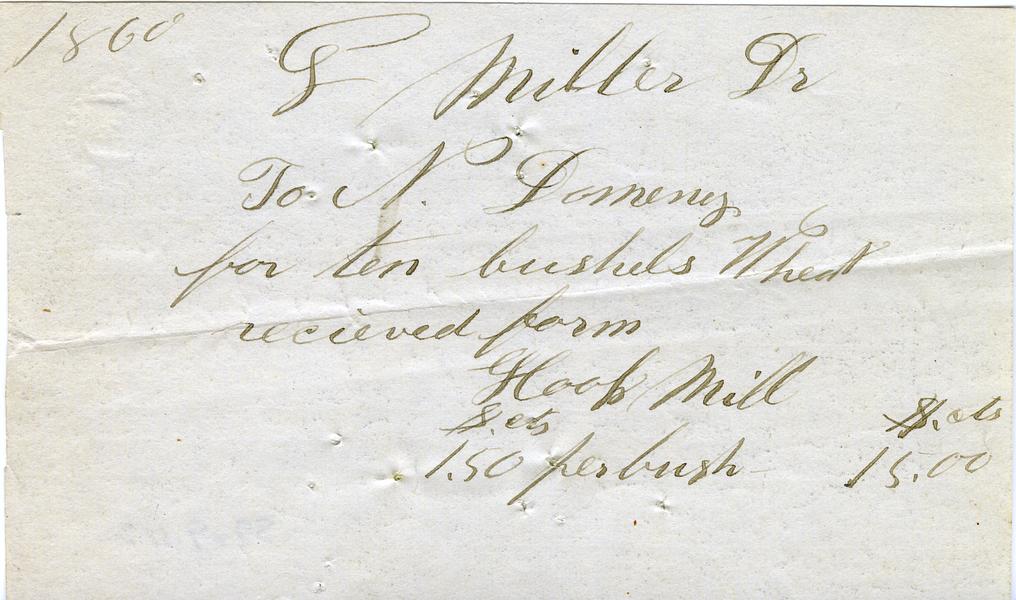 1860
F Miller Dr
To N. Domeny
for ten bushels Wheat
recieved form
Hoop Mill
$. cts $. cts
1.50 per bush 15.00